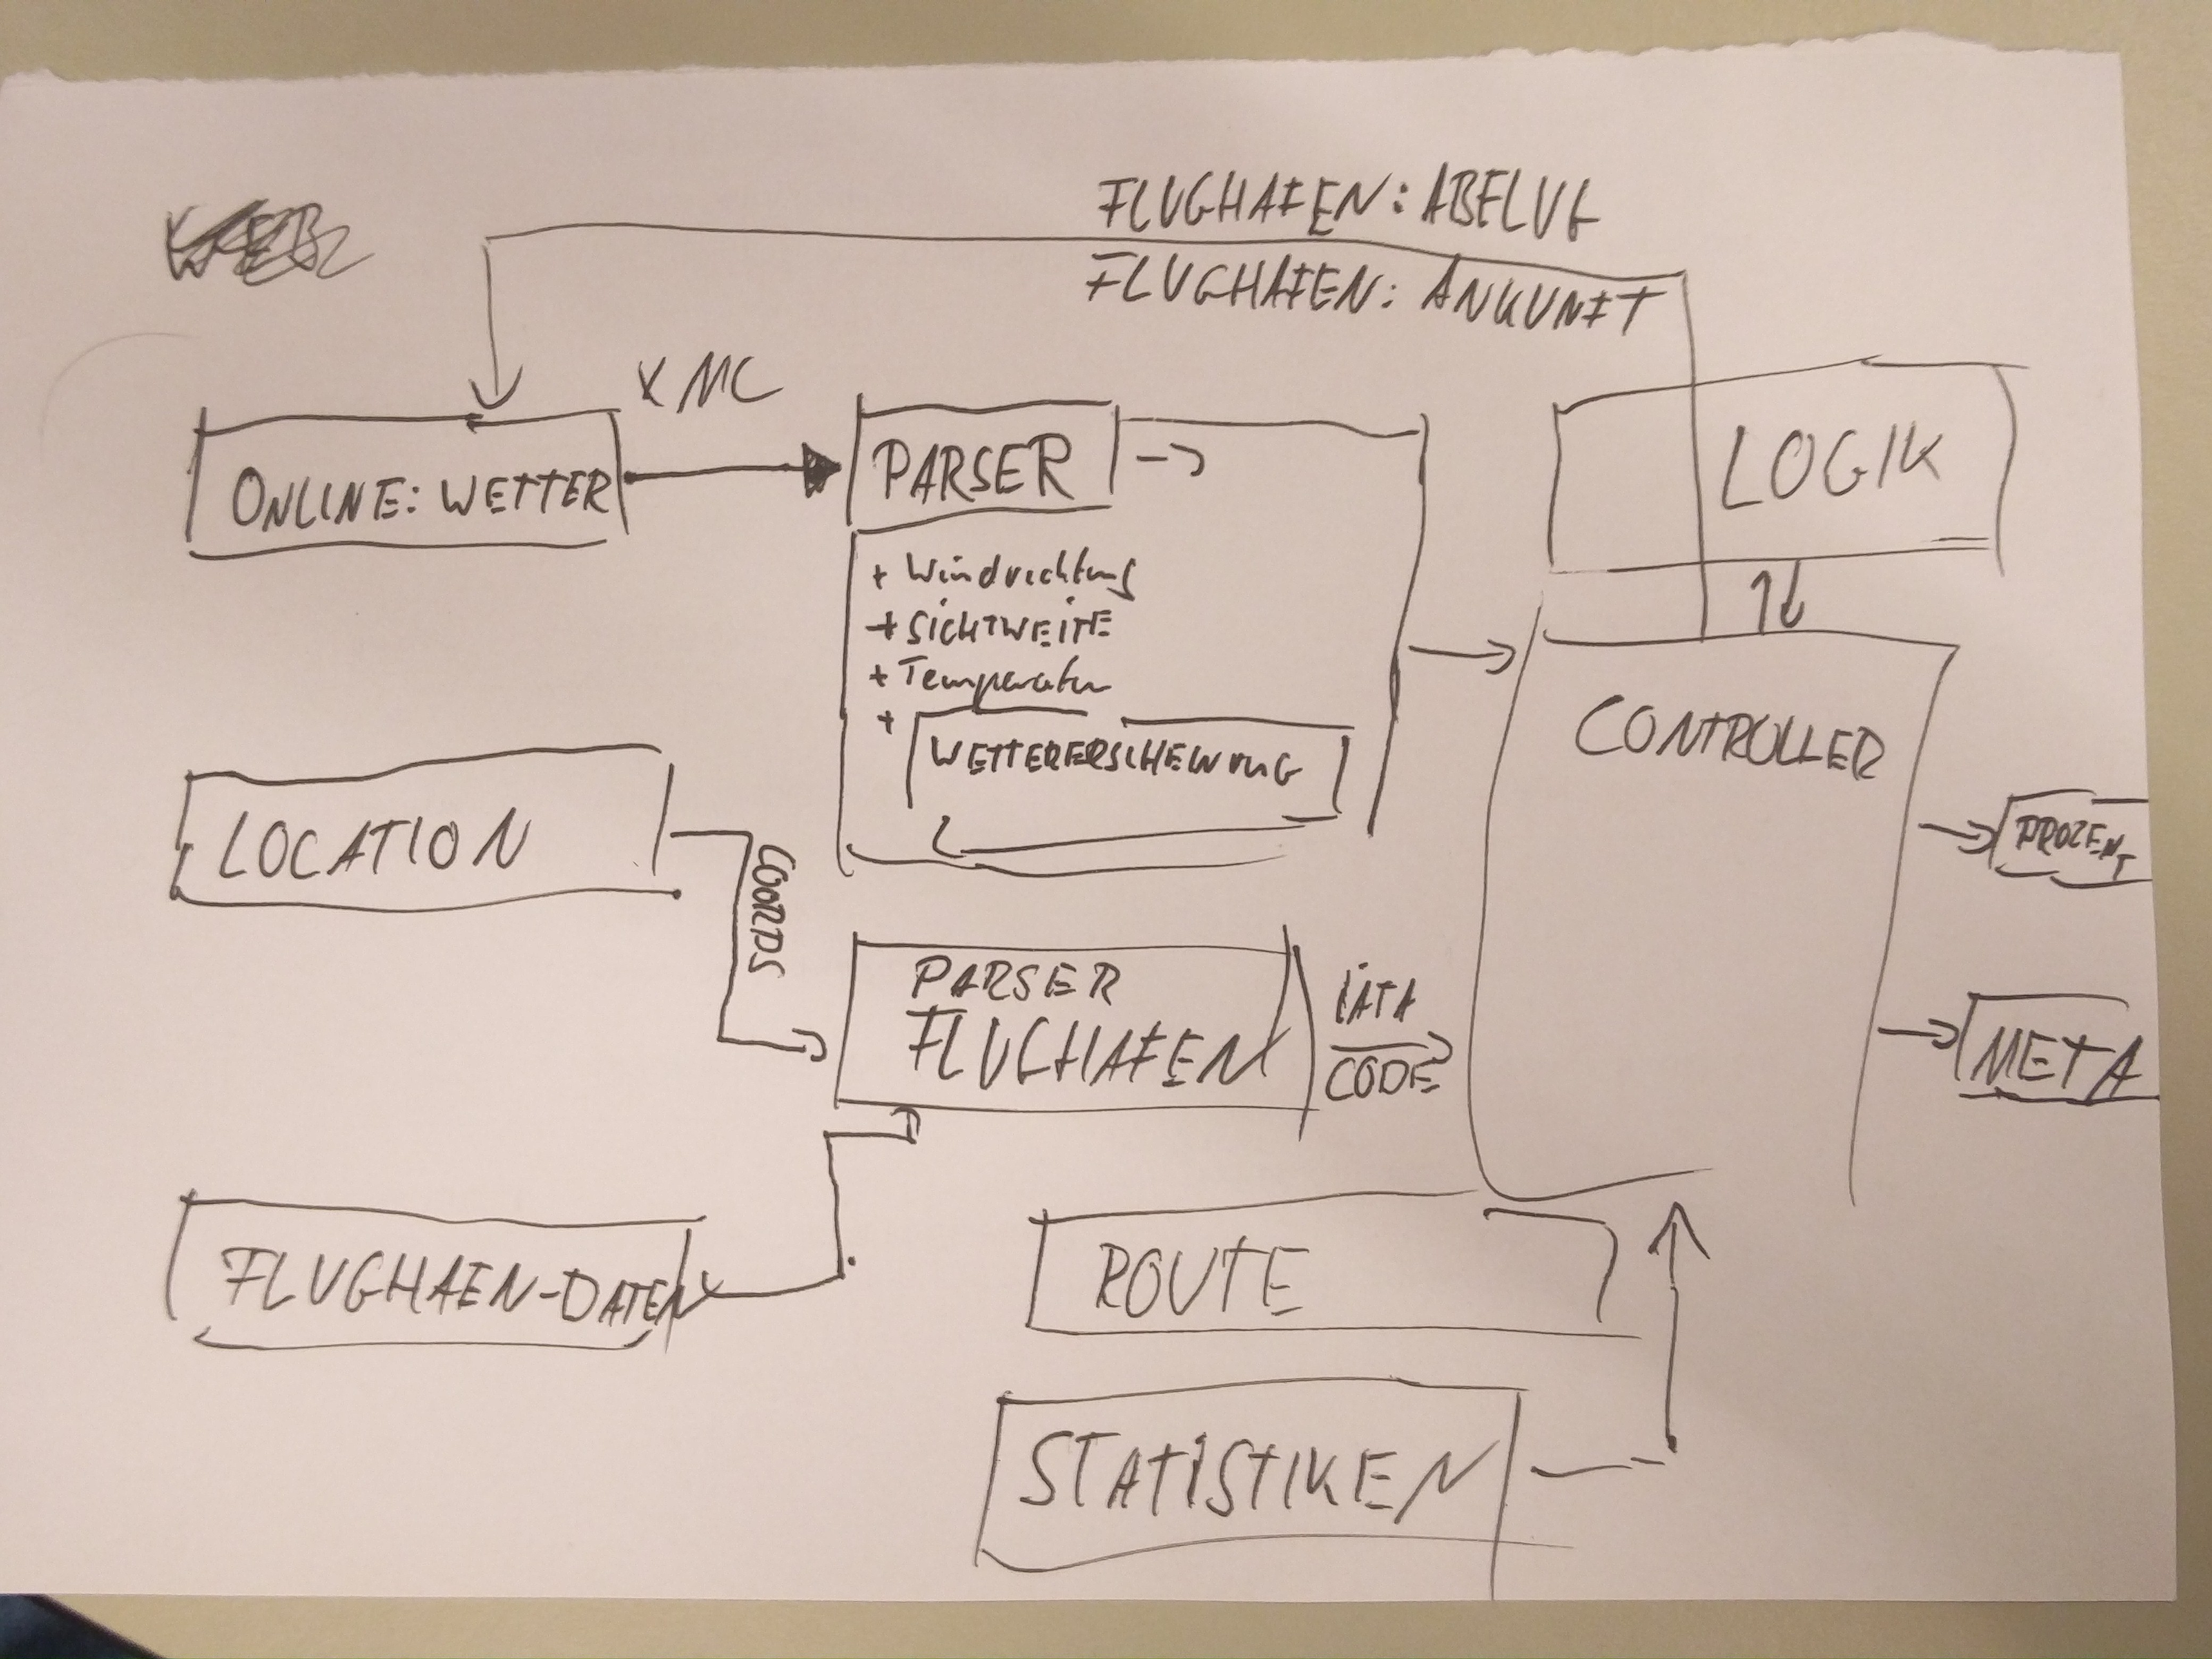 FLUGHAFEN: ABFLUG
FLUGHAFEN: ANKUNFT
XML
ONLINE: WETTER
PARSER
LOGIK
+ Windrichtung
+ SICHTWEITE
+ Temperatur
+
WETTERERSCHEINUNG
CONTROLLER
LOCATION
COORDS
PROZENT
PARSER
FLUGHAFEN
IATA
CODE
META
FLUGHAEN-DATEN
ROUTE
STATISTIKEN